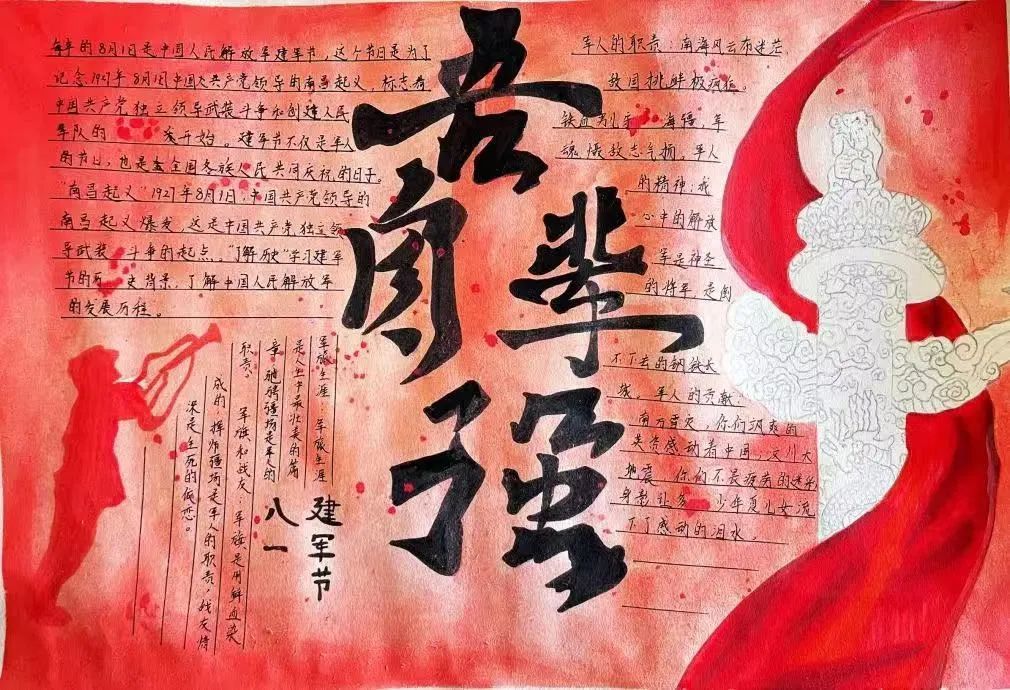 每年的8月1日是中国人民解放军建军节，这个节日是为了
记念1927年8月1日中国共产党领导的南昌起义，标志着
中国共产党独立领导武装斗争和创建人民
军队的 开始。建军节不仅是军人
的节日，也是全国各族人民共同庆祝的日子。
"南昌起义"1927年8月1日，中国共产党领导的
南昌起义爆发，这是中国共产党独立领
导武装 斗争的起点。"了解历史"学习建军
节的历 史背景，了解中国人民解放军
的发展历程。
吾
辈
自
强
军人的职责：南海风云布迷茫，
敌国挑衅极疯狂。
铁血男儿 海疆，军
魂慑敌志气扬。军人
的精神：我
心中的解放
军是神圣
的将军，是倒
不下去的钢铁长
城。军人的贡献
南方雪灾，你们飒爽的
英姿感动着中国；汶川大
地震 你们不畏疲劳的
身影让多 少华夏儿女流
下了感动的泪水。
军旅生涯：军旅生涯
是人生中最壮美的篇
章，驰骋疆场是军人的
职责。
军旗和战友：军旗是用鲜血染
成的，挥师疆场是军人的职责，战友情
深是生死的依恋。
建军节
八一